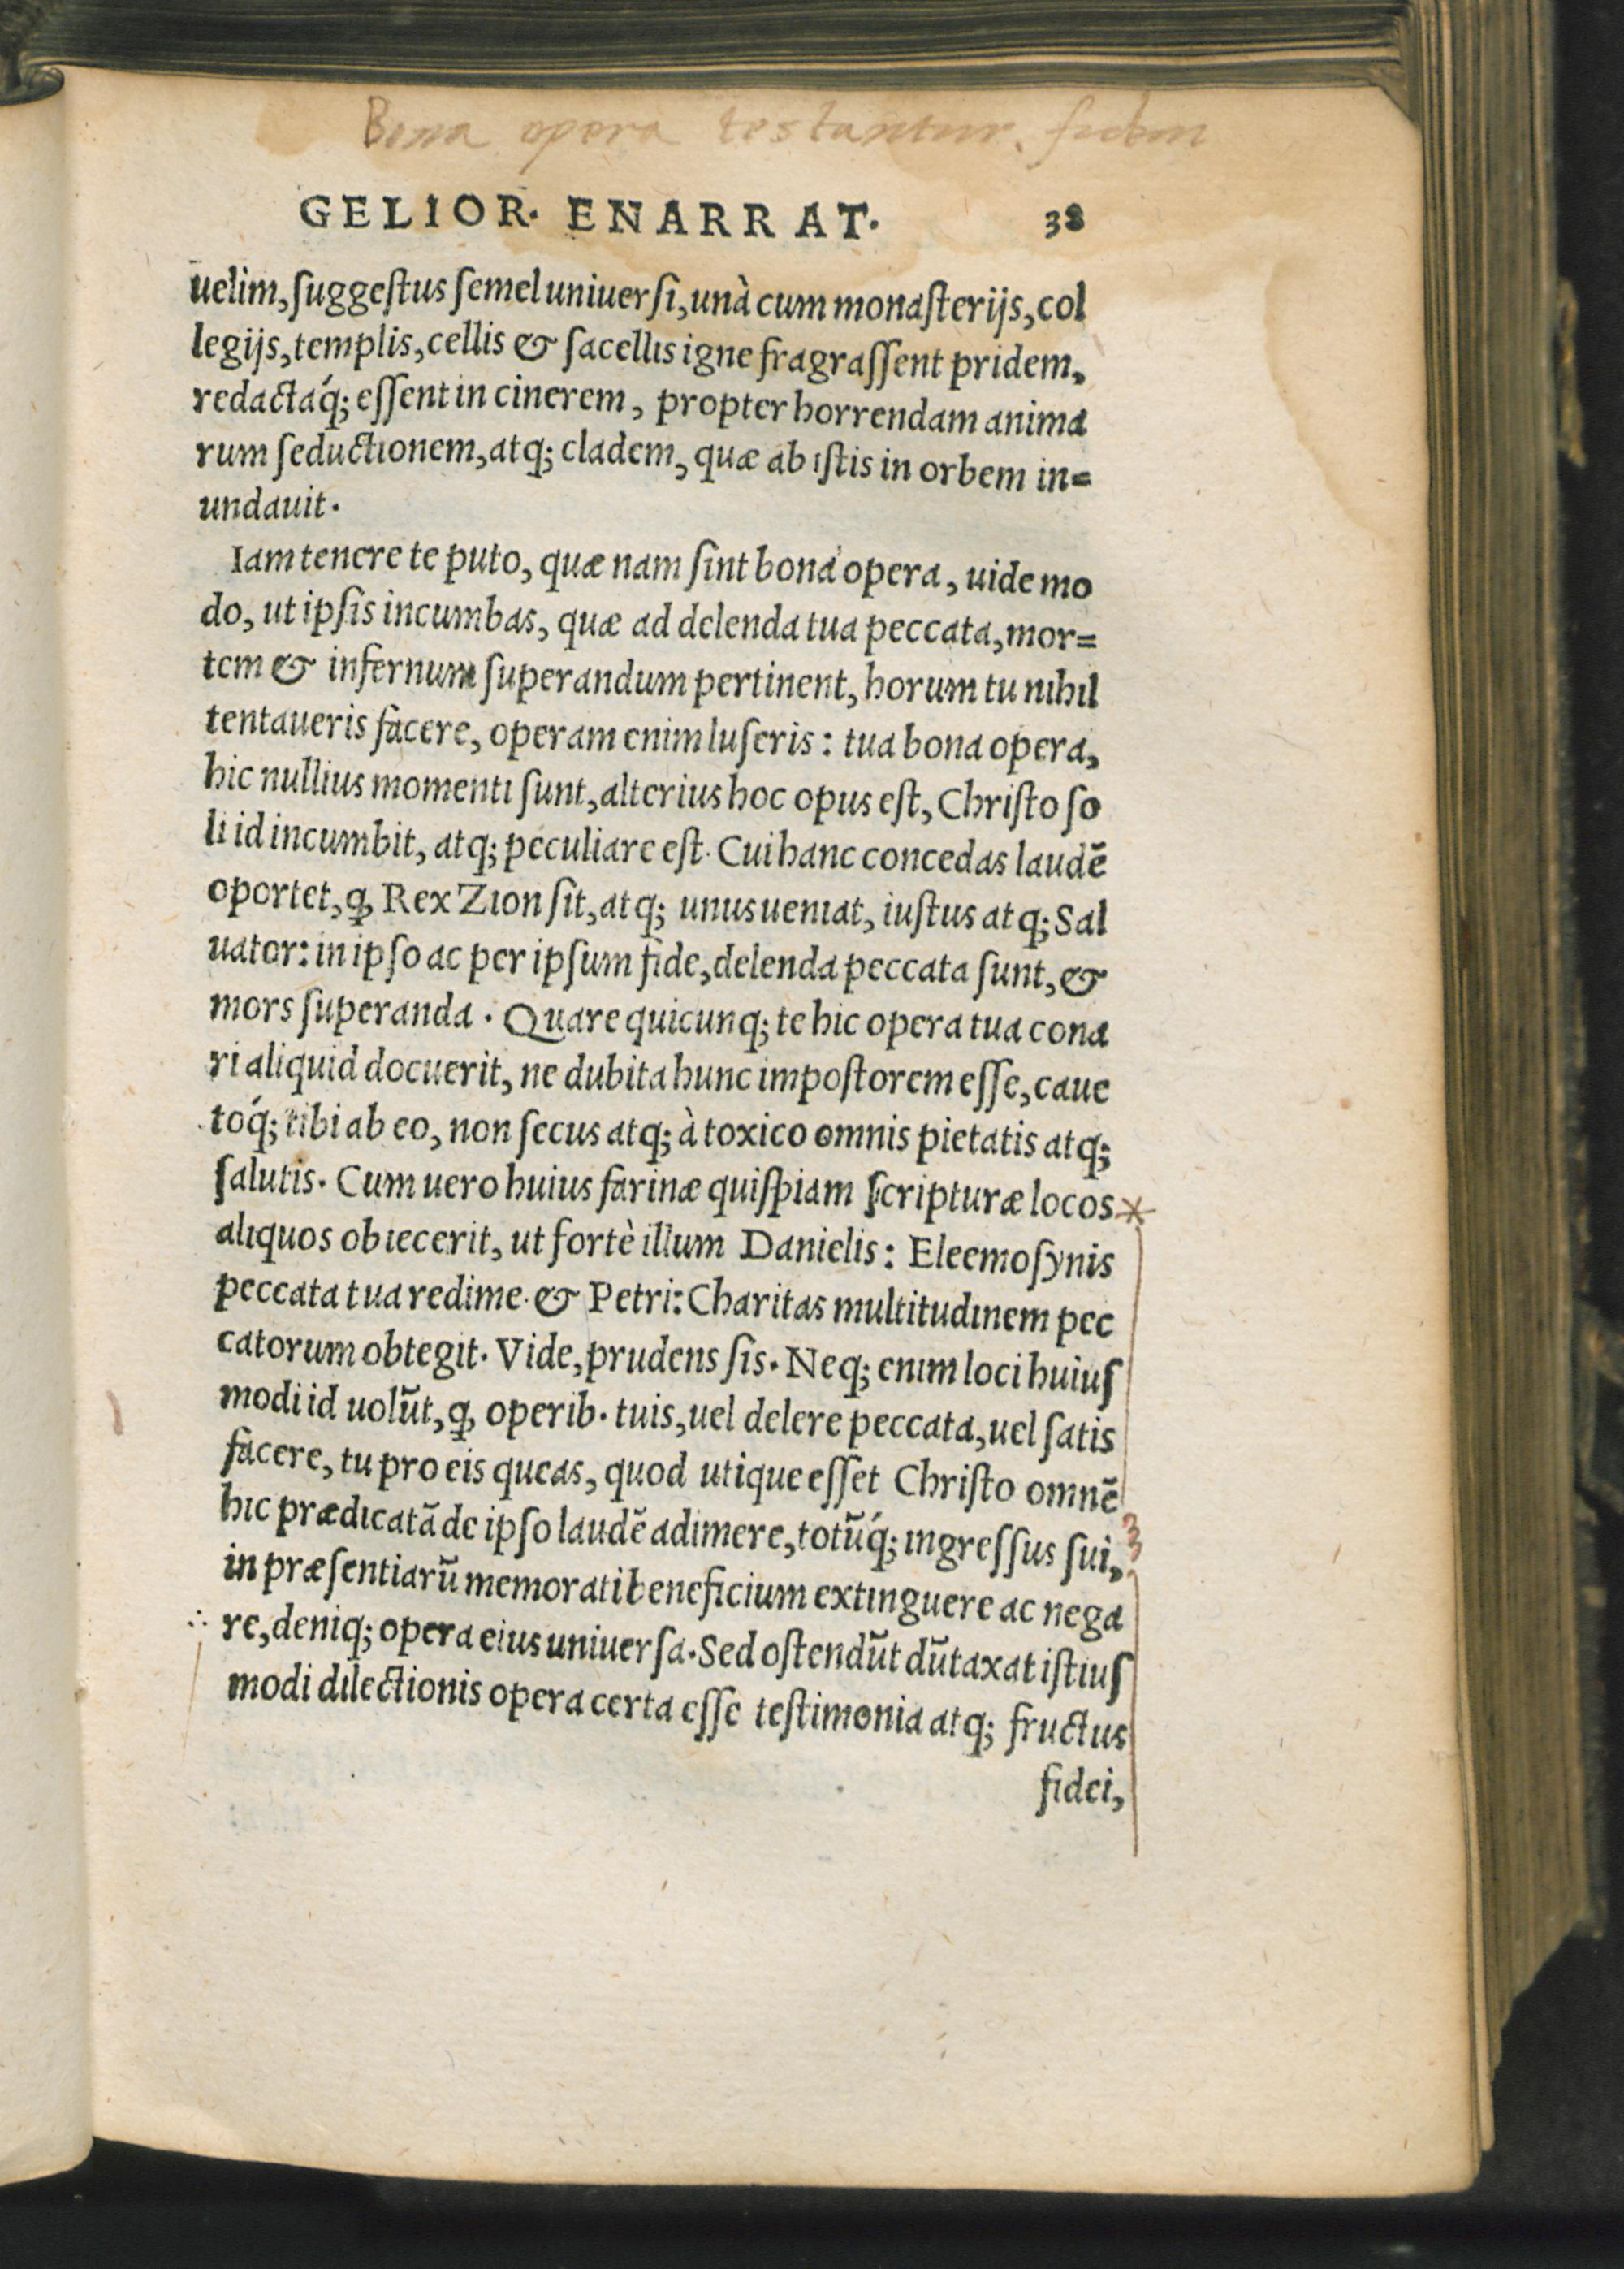 Bona opera testantur fidem
GELIOR. ENARRAT. 38
uelim, ſuggeſtus ſemel uniuerſi, unà cum monaſterijs, col
legijs, templis, cellis & ſacellis igne fragraſſent pridem,
redactaq́; eſſent in cinerem, propter horrendam anima
rum ſeductionem, atq; cladem, quæ ab iſtis in orbem in=
undauit.
Iam tenere te puto, quæ nam ſint bona opera, uide mo
do, ut ipſis incumbas, quæ ad delenda tua peccata, mor=
tem & infernum ſuperandum pertinent, horum tu nihil
tentaueris facere, operam enim luſeris: tua bona opera,
hic nullius momenti ſunt, alterius hoc opus eſt, Chriſto ſo
li id incumbit, atq; peculiare eſt. Cui hanc concedas laudē
oportet, ꝙ Rex Zion ſit, atq; unus ueniat, iuſtus atq; Sal
uator: in ipſo ac per ipſum fide, delenda peccata ſunt, &
mors ſuperanda. Quare quicunq; te hic opera tua cona
ri aliquid docuerit, ne dubita hunc impoſtorem eſſe, caue
toq́; tibi ab eo, non ſecus atq; à toxico omnis pietatis atq;
ſalutis. Cum uero huius farinæ quiſpiam ſcripturæ locos *
aliquos obiecerit, ut fortè illum Danielis: Eleemoſynis
peccata tua redime. & Petri: Charitas multitudinem pec
catorum obtegit. Vide, prudens ſis. Neq; enim loci huiuſ
modi id uolūt, ꝙ operib. tuis, uel delere peccata, uel ſatis
facere, tu pro eis queas, quod utique eſſet Chriſto omnē
hic prædicatā de ipſo laudē adimere, totūq́; ingreſſus ſui,
in præſentiarū memorati beneficium extinguere ac nega
re, deniq; opera eius uniuerſa. Sed oſtendūt dūtaxat iſtiuſ
modi dilectionis opera certa eſſe teſtimonia atq; fructus
fidei,